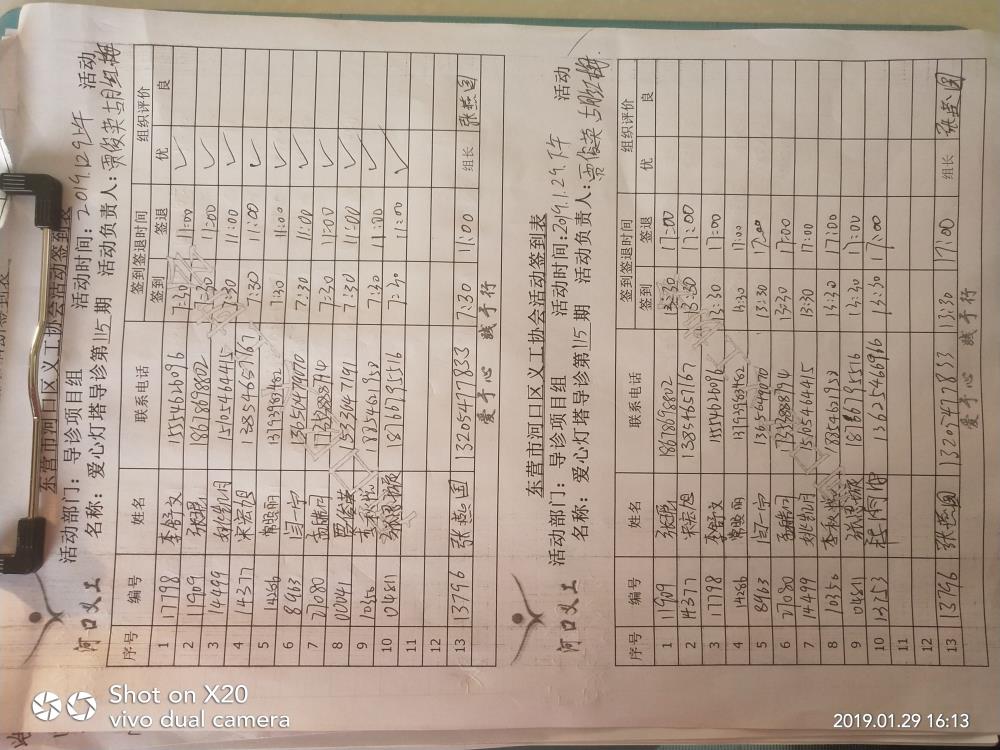 河口义工
东营市河口区义工协会活动签到表
活动部门：导诊项目组 活动时间：2019.1.29上午 活动
名称：爱心灯塔导诊第115期 活动负责人：贾俊英 胡红梅
序号 编号 姓名 联系电话 签到签退时间 组织评价
签到 签退 优 良
1 17798 李舒文 15554626096 7:30 11:00 ✓
2 11909 18678698802 7:30 11:00 ✓
3 14499 姚凯月 15105464415 7:30 11:00 ✓
4 14377 宋宏旭 13854657167 7:30 11:00 ✓
5 14286 常晓丽 13793989482 7:30 11:00 ✓
6 8963 闫宁 13654649070 7:30 11:00 ✓
7 27080 7:30 11:00 ✓
8 10041 15330447191 7:30 11:00 ✓
9 10356 1885461952 7:30 11:00 ✓
10 10481 18766795516 7:30 11:00 ✓
11
12
13 13796 张燕国 13205477833 7:30 11:00 组长 张燕国
爱于心 践于行
河口义工
东营市河口区义工协会活动签到表
活动部门：导诊项目组 活动时间：2019.1.29.下午 活动
名称：爱心灯塔导诊第115期 活动负责人：贾俊英 胡红梅.
序号 编号 姓名 联系电话 签到签退时间 组织评价
签到 签退 优 良
1 11909 18678698802 13:30 17:00
2 14377 宋宏旭 13854657167 13:30 17:00
3 17798 李舒文 15554626096 13:30 17:00
4 14286 常晓丽 13793989482 13:30 17:00
5 8963 闫宁 13654649070 13:30 17:00
6 27080 13:30 17:00
7 14499 姚凯月 15105464415 13:30 17:00
8 10356 1885461952 13:30 17:00
9 10481 18766795516 13:30 17:00
10 13253 13625466916 13:30 17:00
11
12
13 13796 张燕国 13205477833 13:30 17:00 组长 张燕国
爱于心 践于行
Shot on X20
vivo dual camera
2019.01.29 16:13